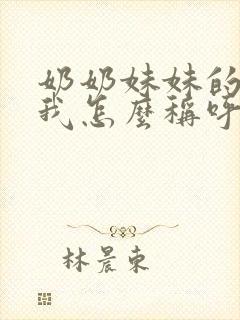 奶奶妹妹的
我怎麼稱呼
林晨東